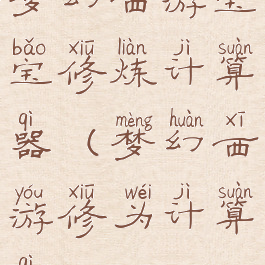 梦幻西游宝
bǎo xiū liàn jì suàn
宝修炼计算
qì mèng huàn xī
器（梦幻西
yóu xiū wéi jì suàn
游修为计算
qì